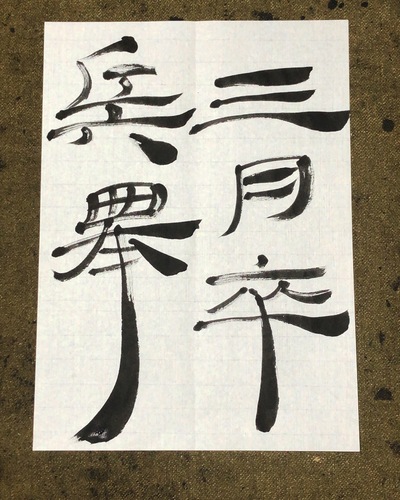 三月卒
兵舉